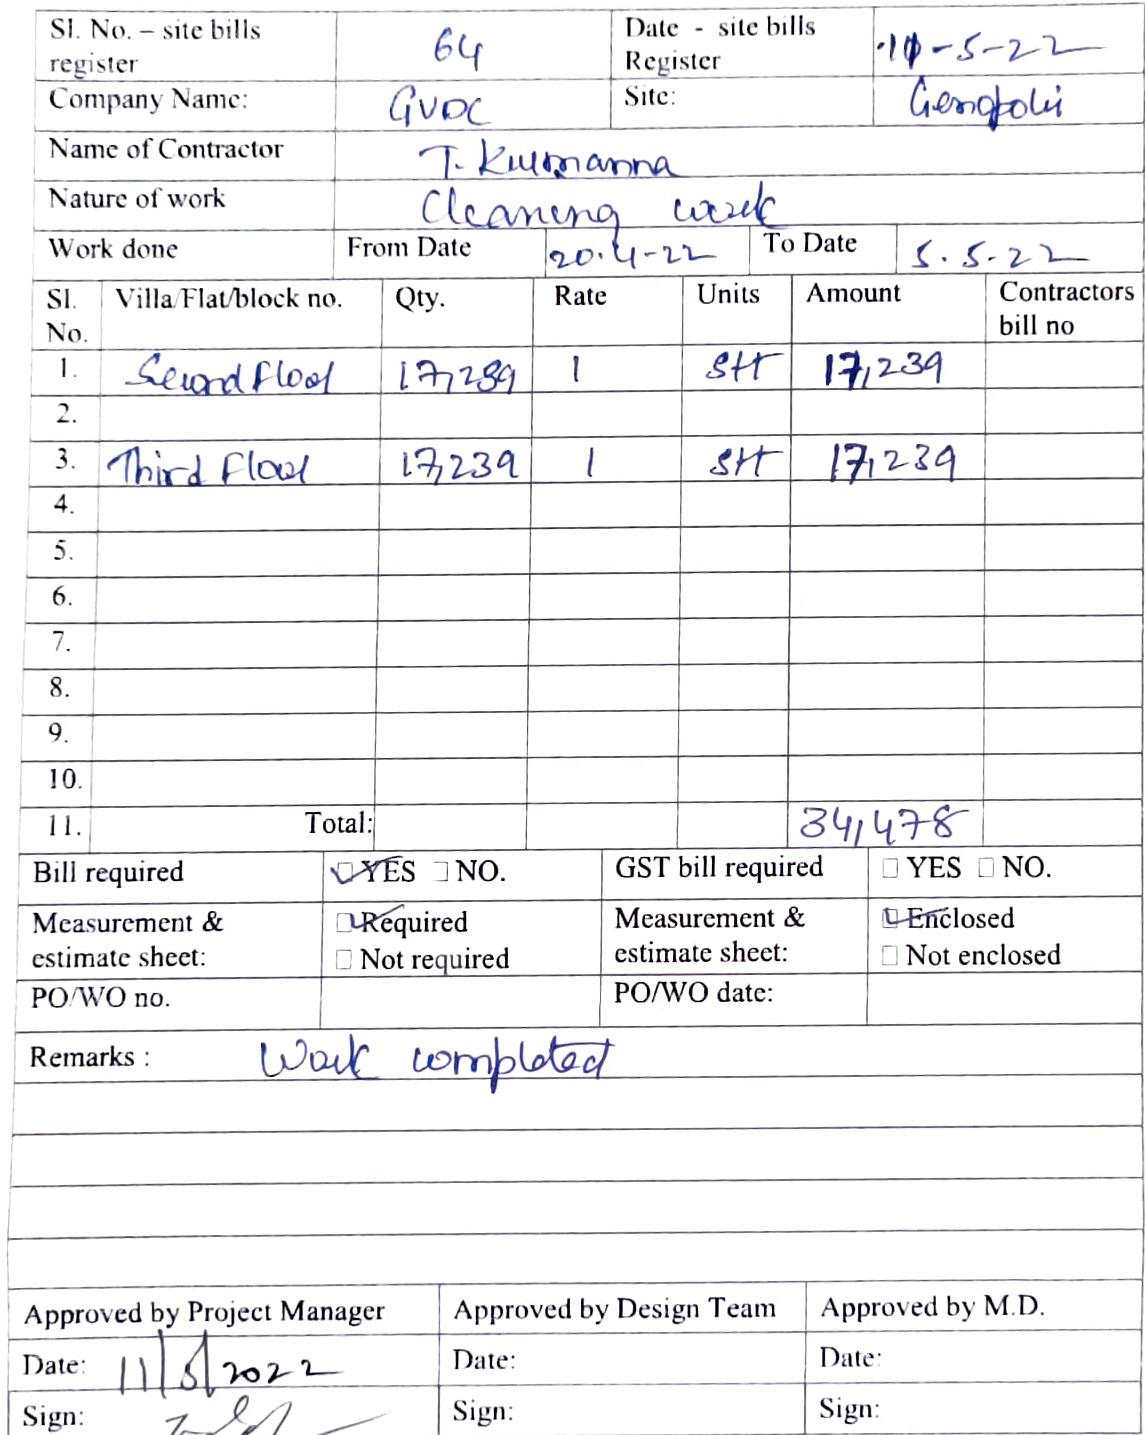 Sl. No. – site bills register 64 Date - site bills Register 11-5-22
Company Name: GVDC Site: Genopolis
Name of Contractor T. Kurmanna
Nature of work Cleaning work
Work done From Date 20.4-22 To Date 5.5.22
Sl. No. Villa/Flat/block no. Qty. Rate Units Amount Contractors bill no
1. Second Floor 17,239 1 Sft 17,239
2.
3. Third Floor 17,239 1 Sft 17,239
4.
5.
6.
7.
8.
9.
10.
11. Total: 34,478
Bill required YES NO. GST bill required YES NO.
Measurement & estimate sheet: Required Not required Measurement & estimate sheet: Enclosed Not enclosed
PO/WO no. PO/WO date:
Remarks : Work completed
Approved by Project Manager Approved by Design Team Approved by M.D.
Date: 11/5/2022 Date: Date:
Sign: Sign: Sign: